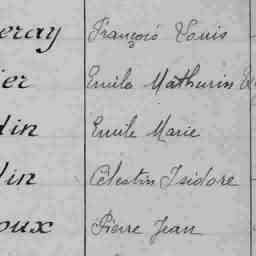 eray François Louis
ier Emile Mathurin
din Emile Marie
din Célestin Isidore
oux Pierre Jean